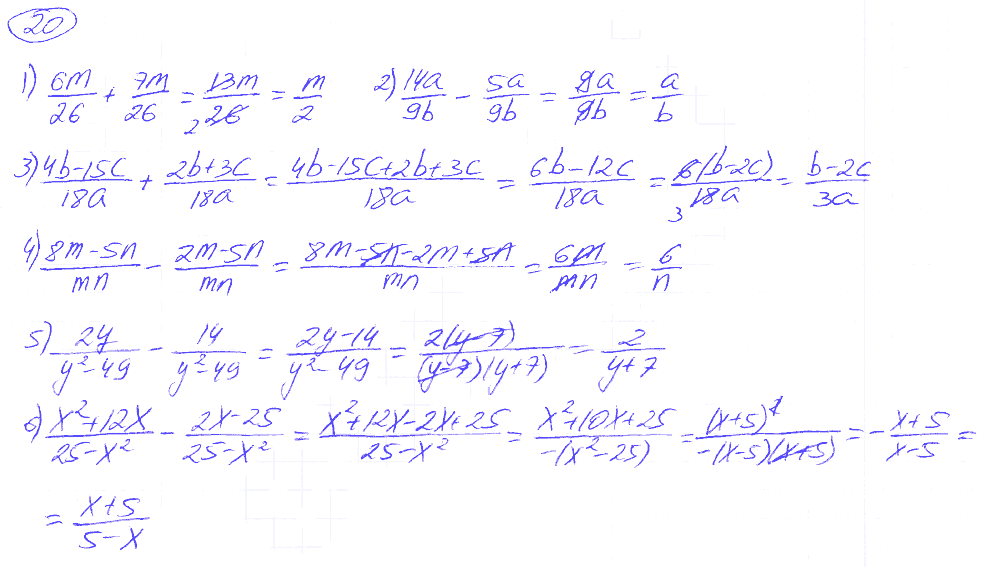 20
1) 6m/26 + 7m/26 = 13m/26 = m/2 2) 14a/9b - 5a/9b = 9a/9b = a/b
3) (4b-15c)/18a + (2b+3c)/18a = (4b-15c+2b+3c)/18a = (6b-12c)/18a = 6(b-2c)/18a = (b-2c)/3a
4) (8m-5n)/mn - (2m-5n)/mn = (8m-5n-2m+5n)/mn = 6m/mn = 6/n
5) 2y/(y²-49) - 14/(y²-49) = (2y-14)/(y²-49) = 2(y-7)/(y-7)(y+7) = 2/(y+7)
6) (x²+12x)/(25-x²) - (2x-25)/(25-x²) = (x²+12x-2x+25)/(25-x²) = (x²+10x+25)/-(x²-25) = (x+5)²/-(x-5)(x+5) = -(x+5)/(x-5) =
= (x+5)/(5-x)